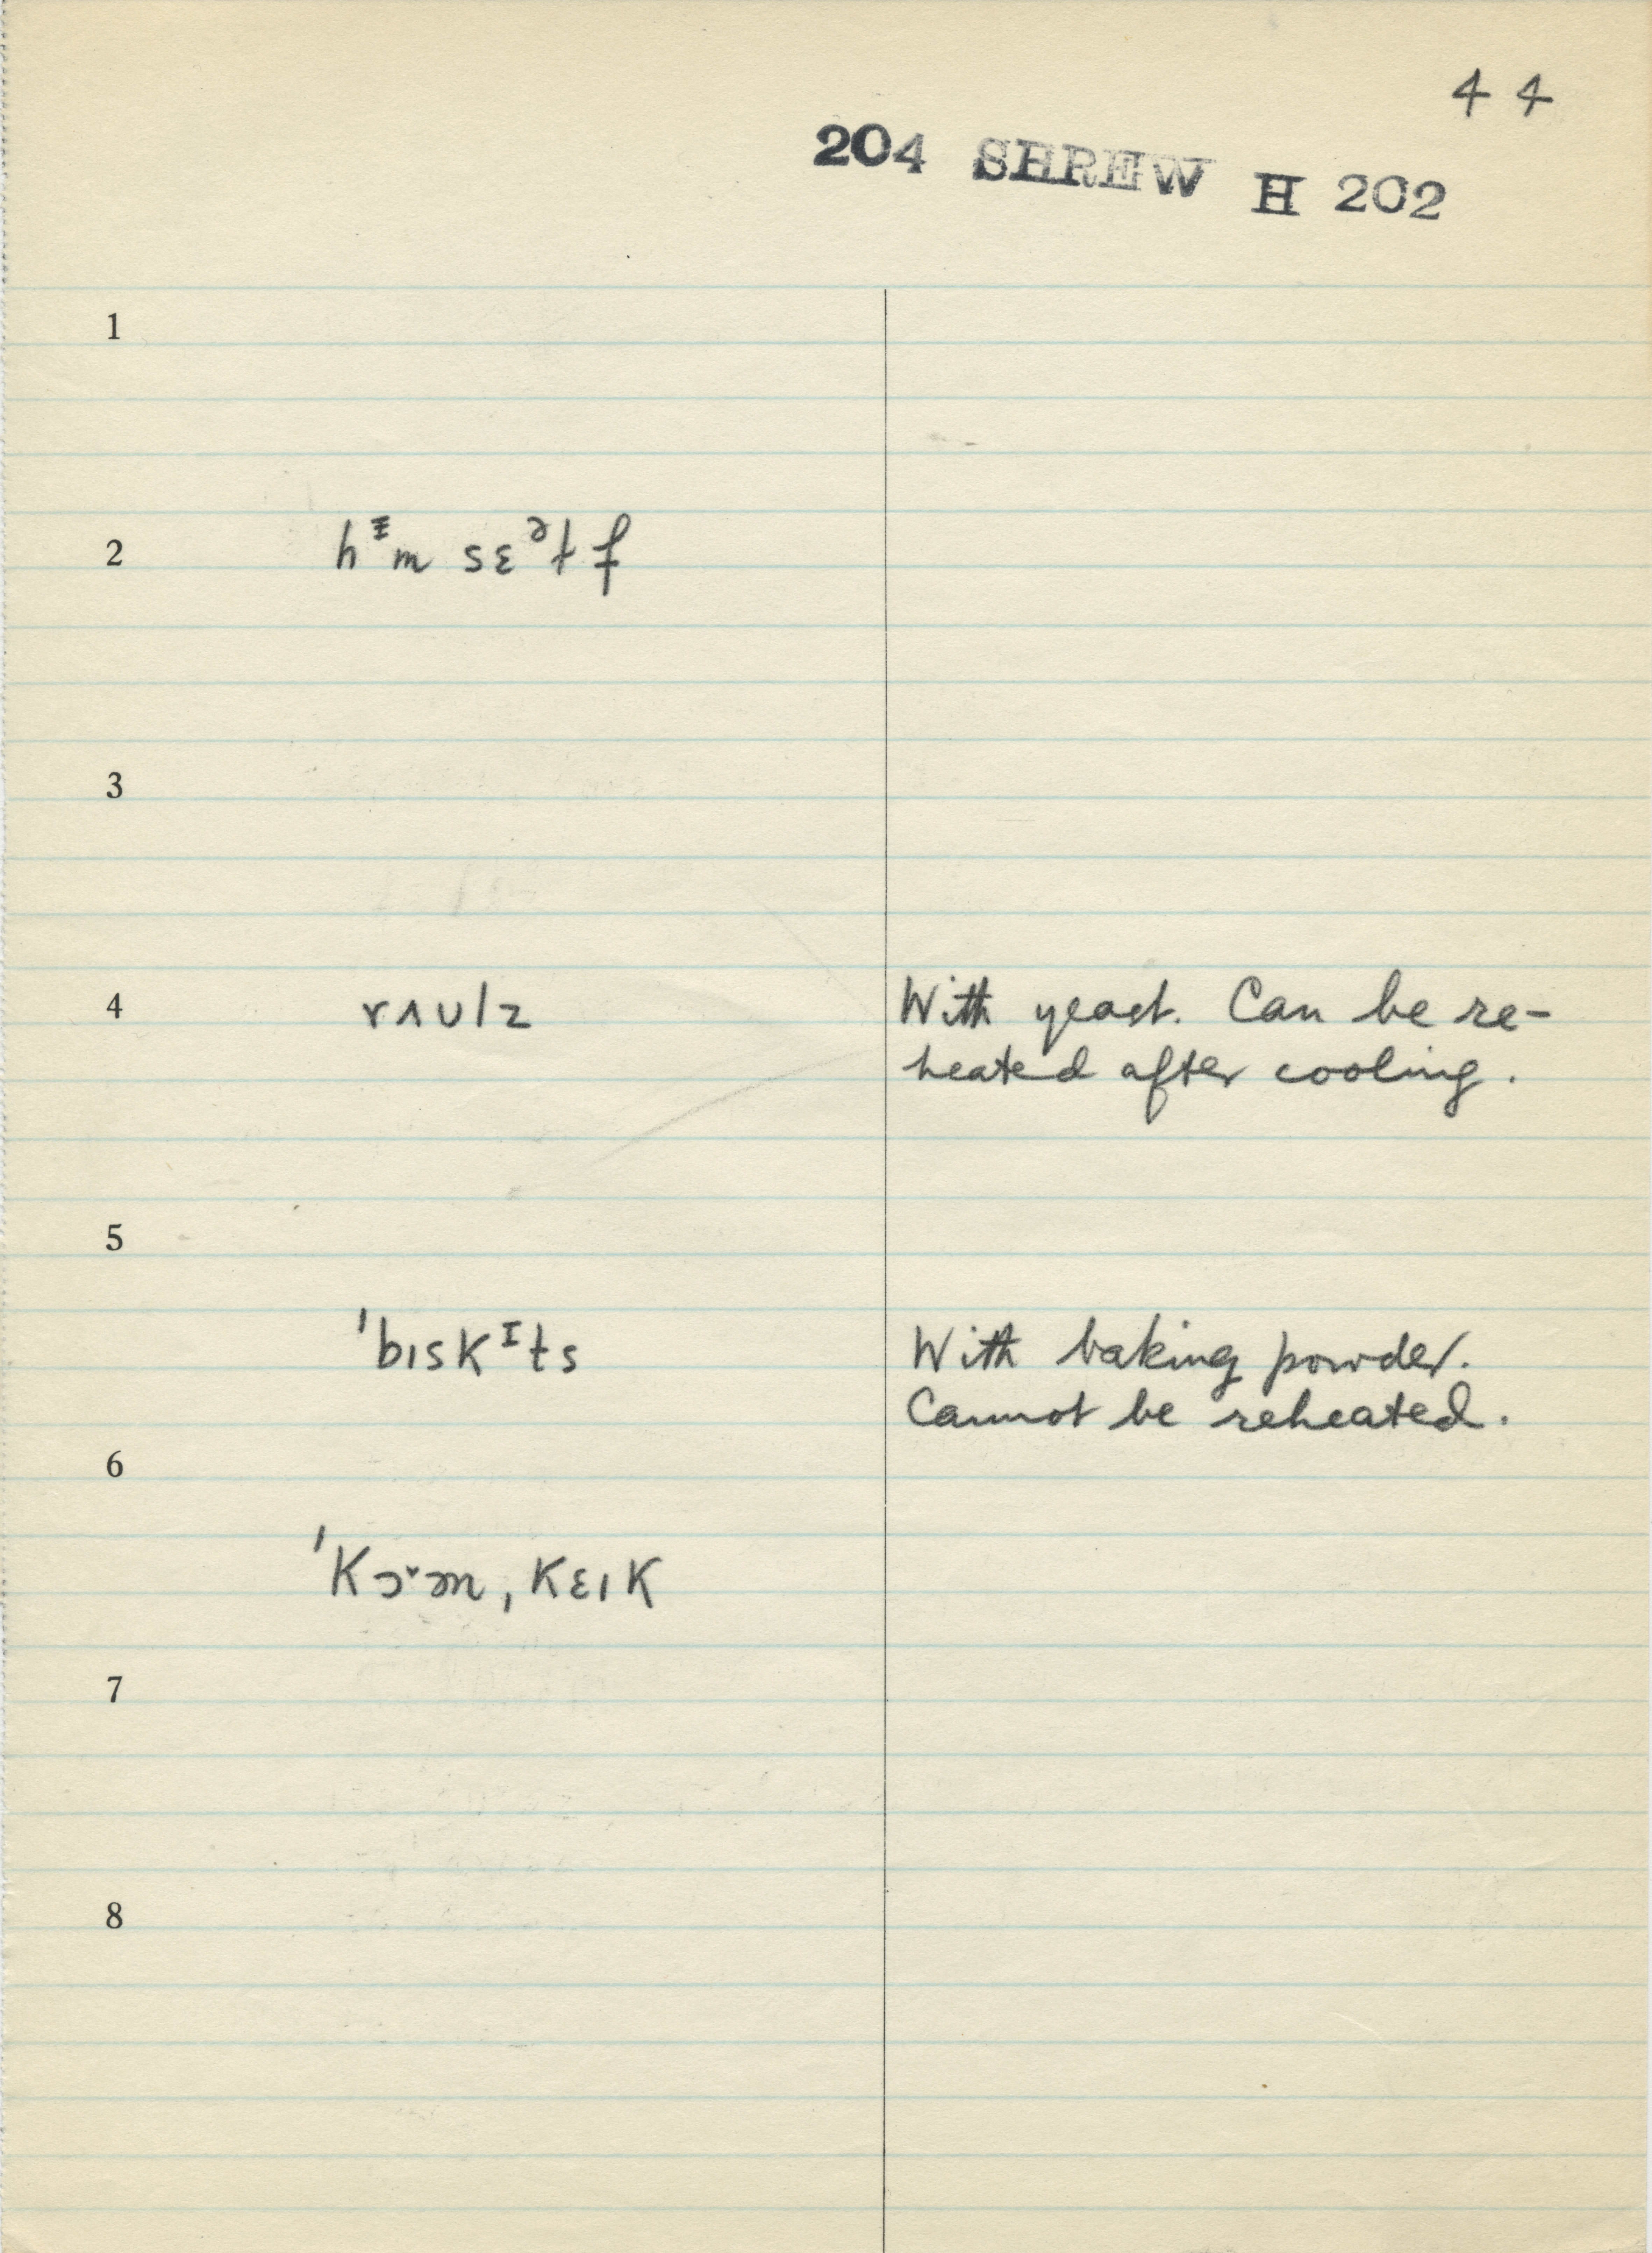 4 4
204 SHREW H 202
1
2
3
4 rʌʊlz With yeast. Can be re-
heated after cooling.
5
ˈbɪskᴵts With baking powder.
Cannot be reheated.
6
ˈkɔ˅ɚn, kɛɪk
7
8